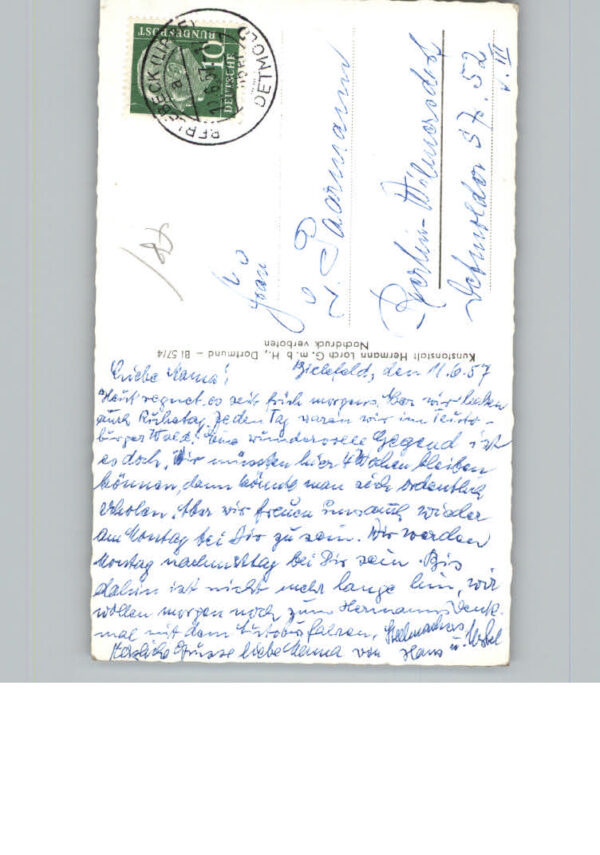 10
DEUTSCHE
BUNDESPOST
DETMOLD
Frau
Paarmann
Berlin-Wilmersdorf
Detmolder Str. 52
v. III
Kunstanstalt Hermann Lorch G. m. b. H., Dortmund – Bi 57/4
Nachdruck verboten
Bielefeld, den 11.6.57
Liebe Mama!
Heut regnet es seit früh morgens. Aber wir haben
auch Ruhetag. Jeden Tag waren wir im Teuto-
burger Wald. Eine wundervolle Gegend ist
es doch. Wir müssten hier 4 Wochen bleiben
können, dann könnte man sich ordentlich
erholen. Aber wir freuen uns auch wieder
am Montag bei Dir zu sein. Wir werden
Montag nachmittag bei Dir sein. Bis
dahin ist nicht mehr lange hin, wir
wollen morgen noch zum Hermanns Denk-
mal mit dem Autobus fahren.
Herzliche Grüsse liebe Mama von Hans u.